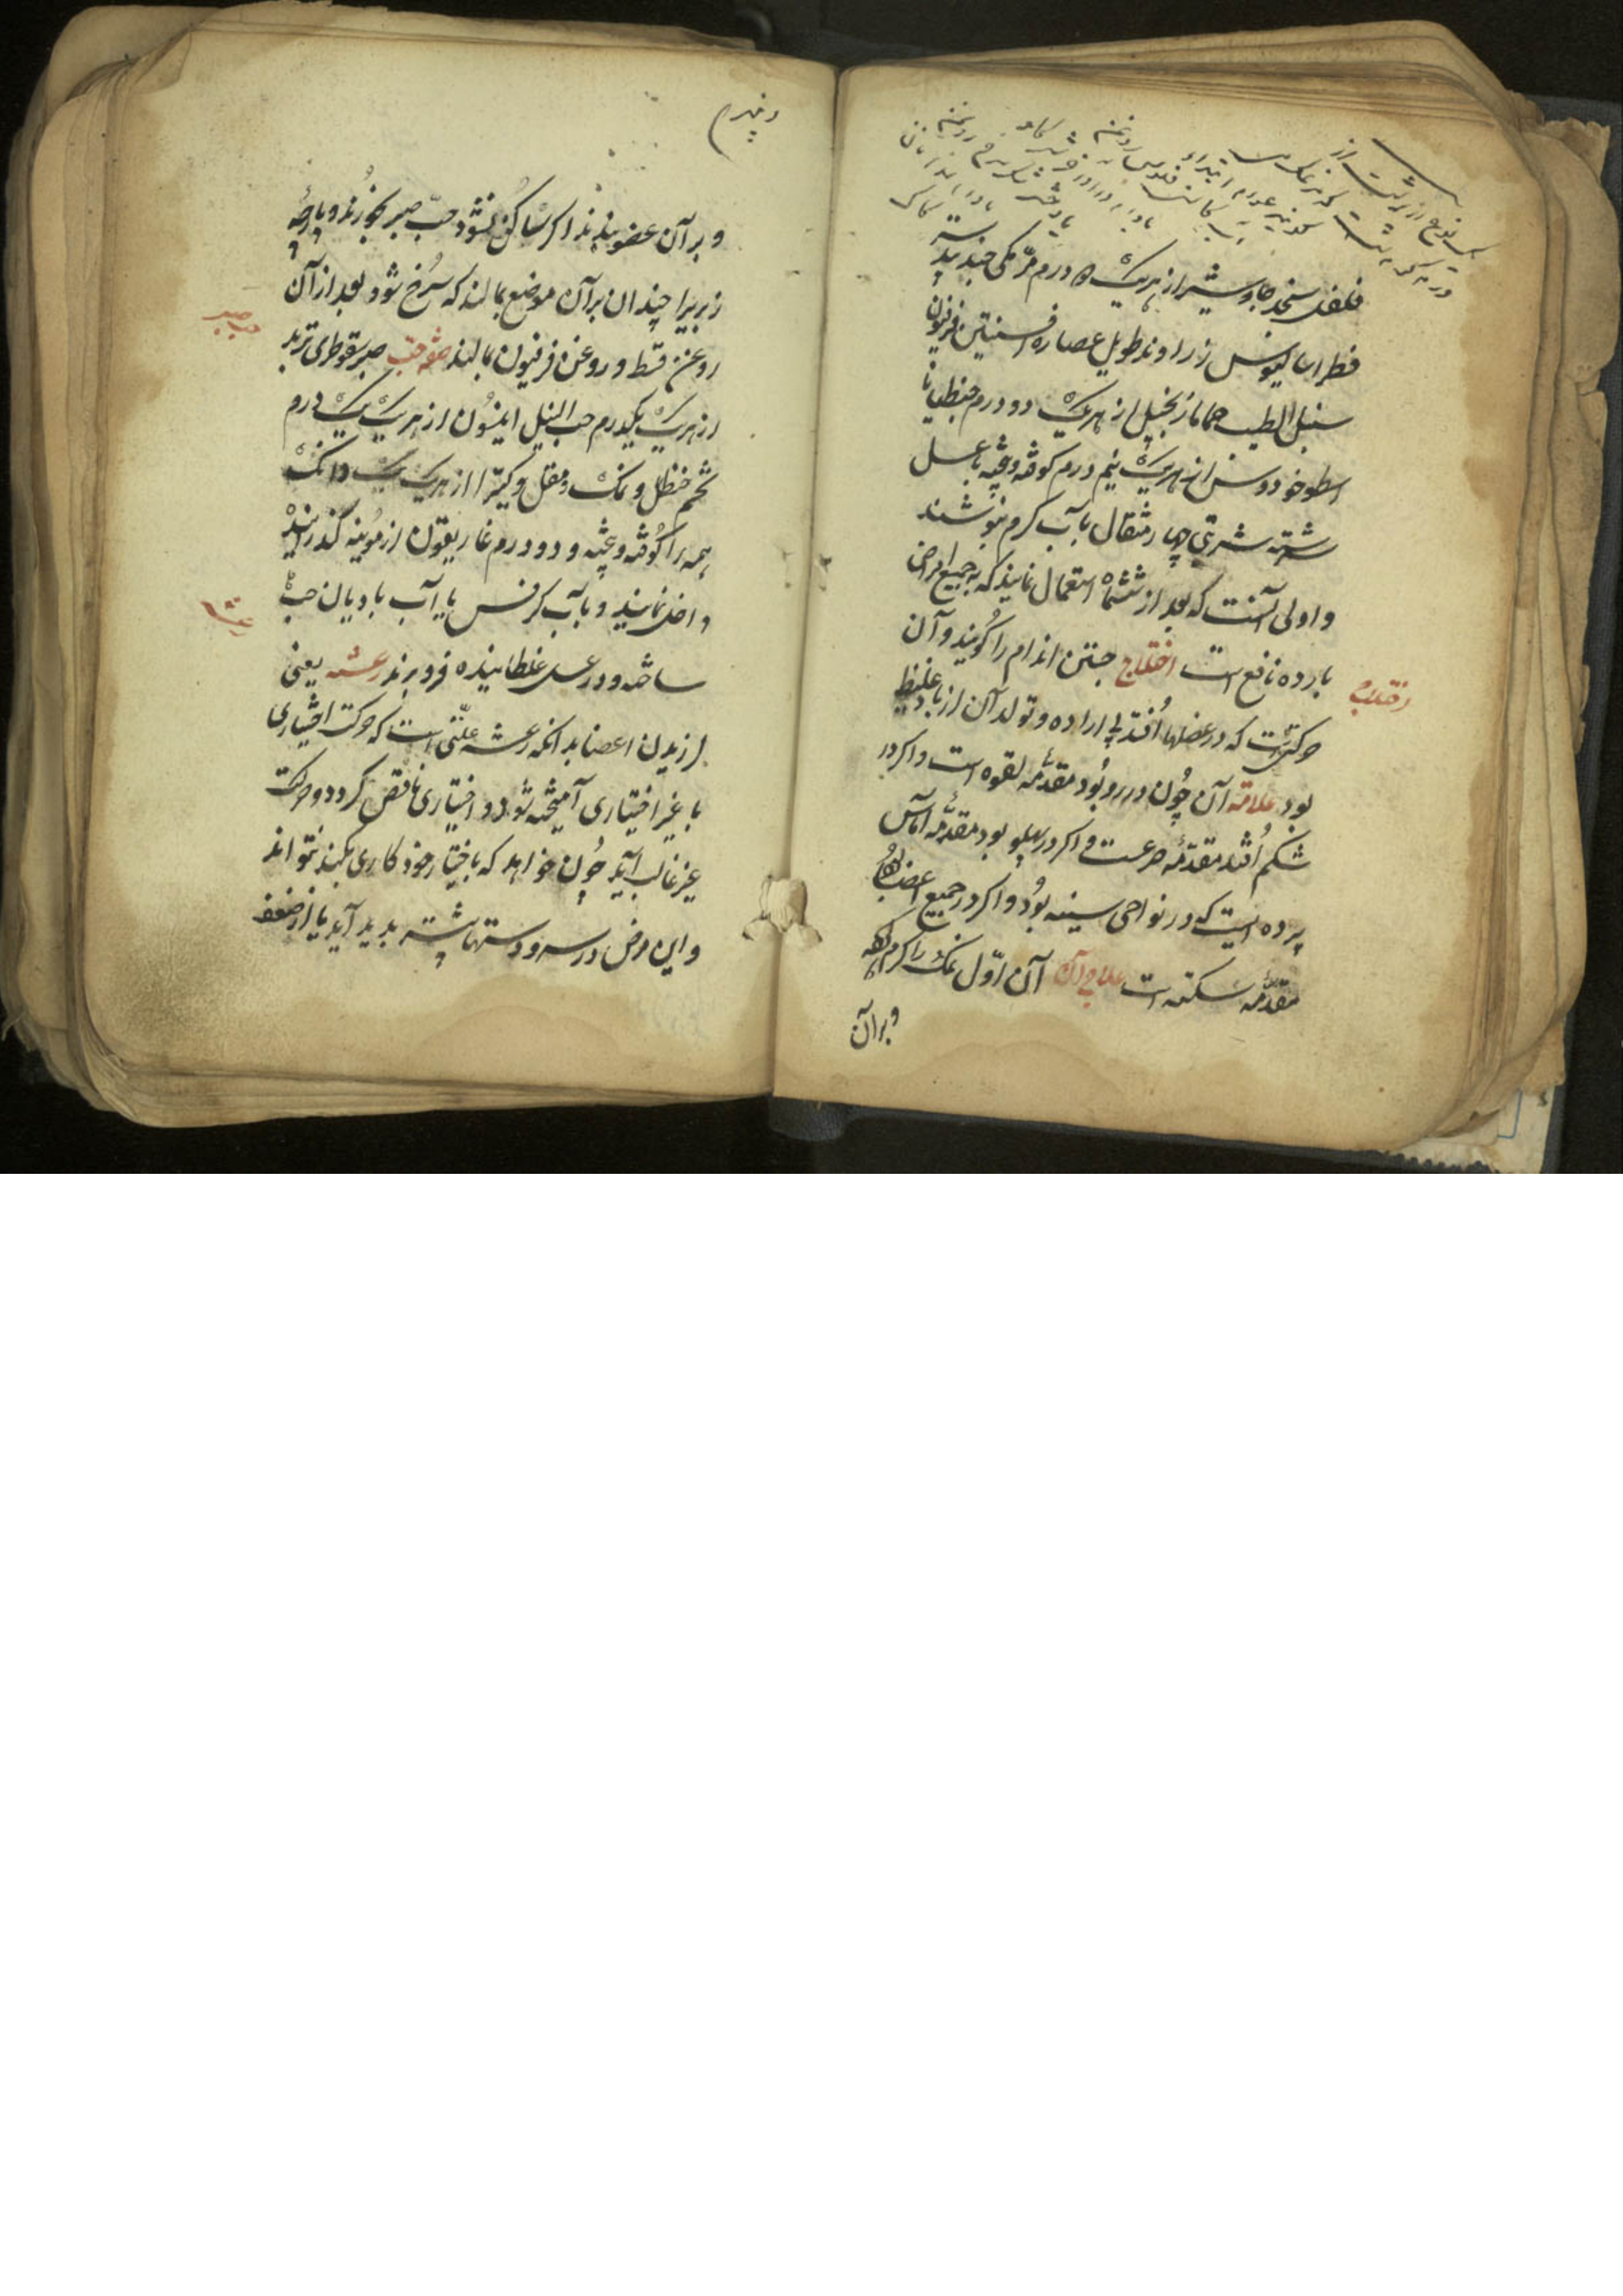 فلفل سنجد جاوشیر از هریک ۵ درم مر مکی جندبیدستر
قطراسالیوس زراوند طویل عصاره افسنتین فرفیون
سنبل الطیب حماما زنجبیل از هریک دو درم جنطیانا
اسطوخودوس از هریک نیم درم کوفته و بیخته با عسل
سرشته شربتی چهار مثقال با آب کرم بنوشند
و اولی آنست که بعد از ششماه استعمال نمایند که به جمیع امراض
بارده نافع است اختلاج جستن اندام را کویند و آن
اختلاج
حرکتیست که در عضلها اُفتد بی اراده و تولد آن از باد غلیظ
بود علامه آن چُون در رو بُود مقدّمه لقوه است و اکر در
شکم اُفتد مقدّمه صرعست و اکر در پهلو بود مقدّمه آماس
پرده ایست که در نواحی سینه بُود و اکر در جمیع اعضا بُود
مقدّمه سکته است علاج آن آن اوّل نمک را کرم کنند
و برآن
و برآن عضو بندند اکر ساکُن نشود حبّ صبر بخورند و پارچهٔ
زبریرا چندان برآن موضع بمالند که سُرخ شود بعد از آن
روغن قسط و روغن فرفیون بمالند صفه حبّ صبر سقوطری تربد
حب صبر
از هریک یکدرم حب النیل انیسُون از هریک یک درم
شحم حنظل و نمک و مقل و کتیرا از هریک یک دانک
همه را کُوفته و بیخته و دو درم غاریقون از مُوینه کذرانیده
داخل نمایند و بآب کرفس یا آب بادیان حب
رعشه
ساخته و در عسل غلطانیده فرو برند رعشه یعنی
لرزیدن اعضا بدانکه رعشه علّتی است که حرکت اختیاری
با غیر اختیاری آمیخته شود و اختیاری ناقص کردد و حرکت
غیر غالب آید چُون خواهد که باختیار خود کاری بکند نتواند
و این مرض در سر و دستها بیشتر بدید آید یا از ضعف